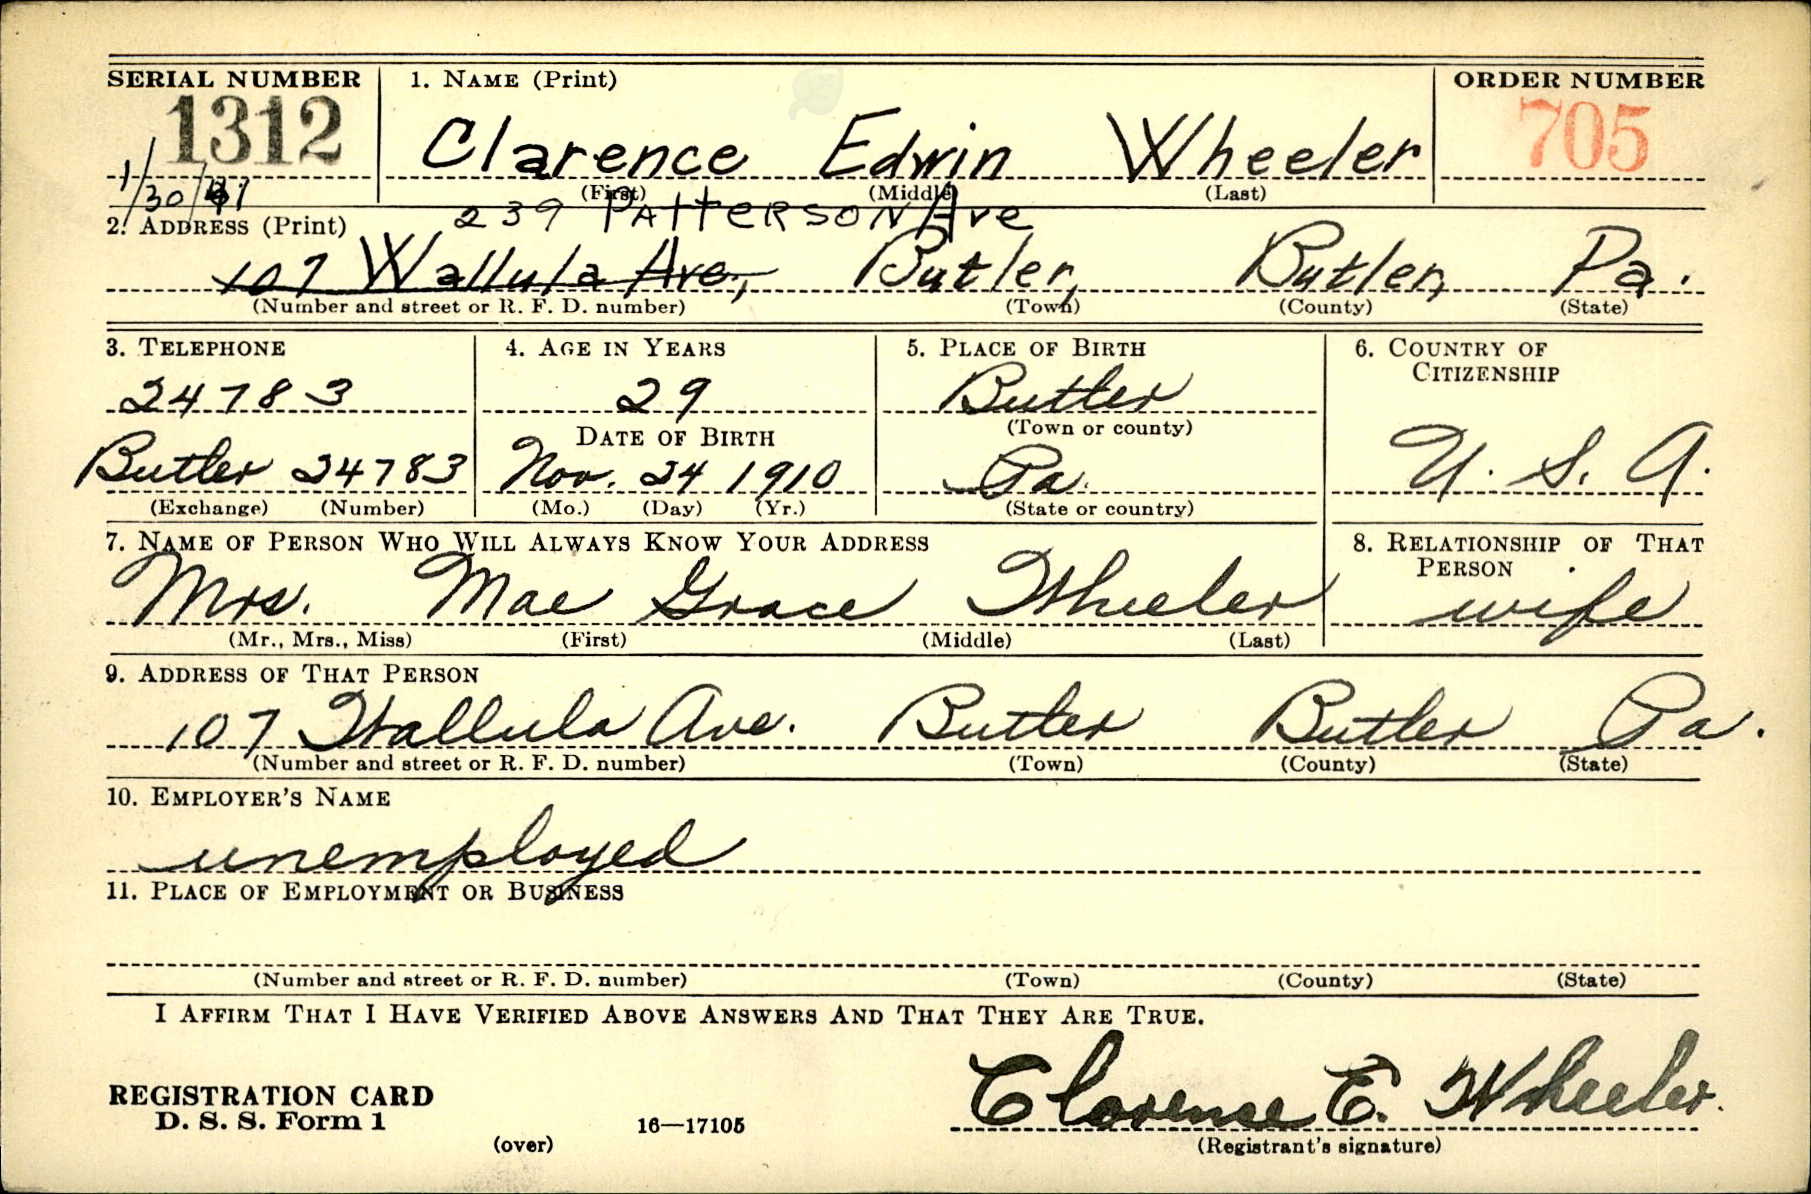 SERIAL NUMBER 1. NAME (Print) ORDER NUMBER
1312 Clarence Edwin Wheeler 705
(First) (Middle) (Last)
1/30/41
239 PATTERSON Ave
2. ADDRESS (Print)
107 Wallula Ave., Butler, Butler, Pa.
(Number and street or R. F. D. number) (Town) (County) (State)
3. TELEPHONE 4. AGE IN YEARS 5. PLACE OF BIRTH 6. COUNTRY OF
CITIZENSHIP
24783 29 Butler
DATE OF BIRTH (Town or county)
Butler 24783 Nov. 24 1910 Pa. U. S. A.
(Exchange) (Number) (Mo.) (Day) (Yr.) (State or country)
7. NAME OF PERSON WHO WILL ALWAYS KNOW YOUR ADDRESS 8. RELATIONSHIP OF THAT
PERSON
Mrs. Mae Grace Wheeler wife
(Mr., Mrs., Miss) (First) (Middle) (Last)
9. ADDRESS OF THAT PERSON
107 Wallula Ave. Butler Butler Pa.
(Number and street or R. F. D. number) (Town) (County) (State)
10. EMPLOYER'S NAME
unemployed
11. PLACE OF EMPLOYMENT OR BUSINESS
(Number and street or R. F. D. number) (Town) (County) (State)
I AFFIRM THAT I HAVE VERIFIED ABOVE ANSWERS AND THAT THEY ARE TRUE.
Clarence E. Wheeler.
REGISTRATION CARD
D. S. S. Form 1 16—17105
(over) (Registrant's signature)